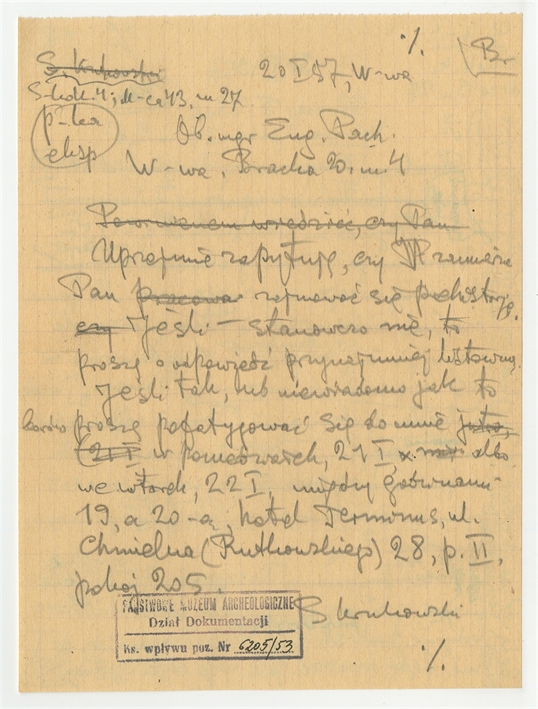 ·/.
Br
S. Krukowski
20 I 57, W-wa
S-kodł. 4; M-ca 43, m 27
p-ka
eksp
Ob. mgr Eug. Pach.
W-wa, Bracka 20, m. 4
Powinienem wiedzieć, czy Pan
Uprzejmie zapytuję, czy zamierza
Pan pracować zajmować się prehistorją,
czy Jeśli – stanowczo nie, to
proszę o odpowiedź przynajmniej listowną.
Jeśli tak, lub niewiadomo jak to
bardzo proszę pofatygować się do mnie jutro,
(21 I) w poniedziałek, 21 I, albo
we wtorek, 22 I, między godzinami
19, a 20-ą, hotel Terminus, ul.
Chmielna (Rutkowskiego) 28, p. II,
pokój 205.
S Krukowski
PAŃSTWOWE MUZEUM ARCHEOLOGICZNE
Dział Dokumentacji
Ks. wpływu poz. Nr 6205/53
·/.